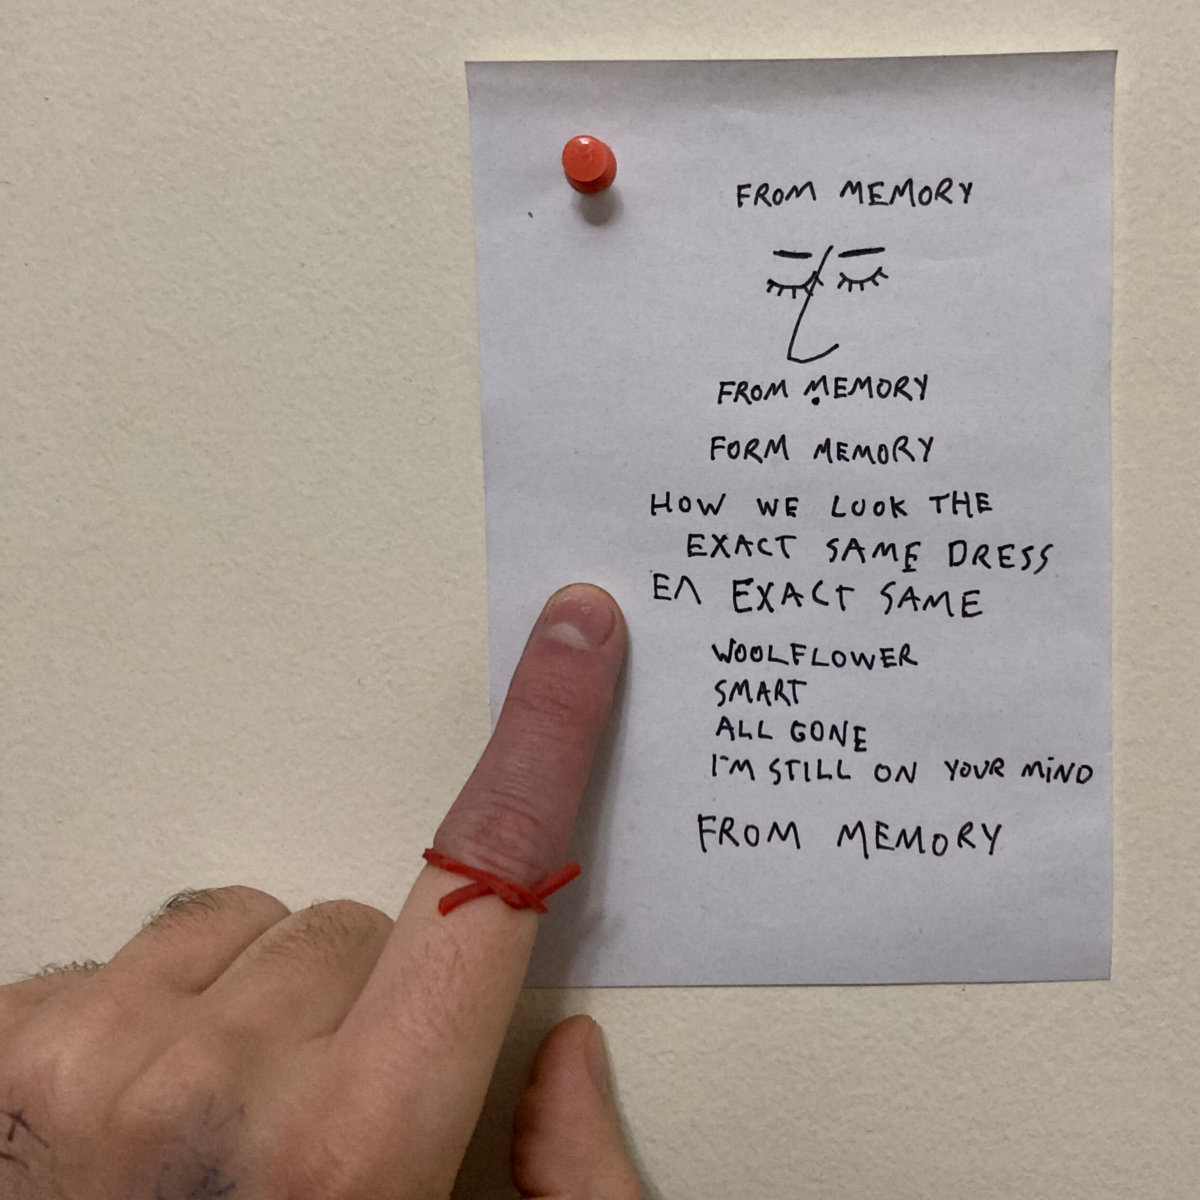 FROM MEMORY
FROM MEMORY
FORM MEMORY
HOW WE LOOK THE
EXACT SAME DRESS
EΛ EXACT SAME
WOOLFLOWER
SMART
ALL GONE
I'M STILL ON YOUR MIND
FROM MEMORY